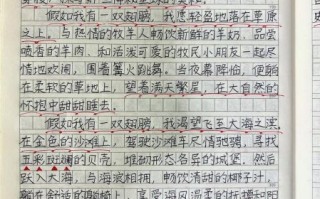 假如我有一双翅膀，我愿轻盈地落在草原
之上，与热情的牧羊人畅饮新鲜的羊奶、品尝
喷香的羊肉、和活泼可爱的牧民小朋友一起尽
情地欢闹，围着篝火跳舞。当夜幕降临，便躺
在柔软的草地上，望着满天繁星，在大自然的
怀抱中甜甜睡去。
假如我有一双翅膀，我渴望飞至大海之滨
在金色的沙滩上，驾驶沙滩车尽情驰骋，寻找
五彩斑斓的贝壳，堆砌形态各异的城堡。然后
跃入大海，与海浪相拥，畅饮清甜的椰子汁，
在舒适的躺椅上，享受海风温柔的抚摸和阳